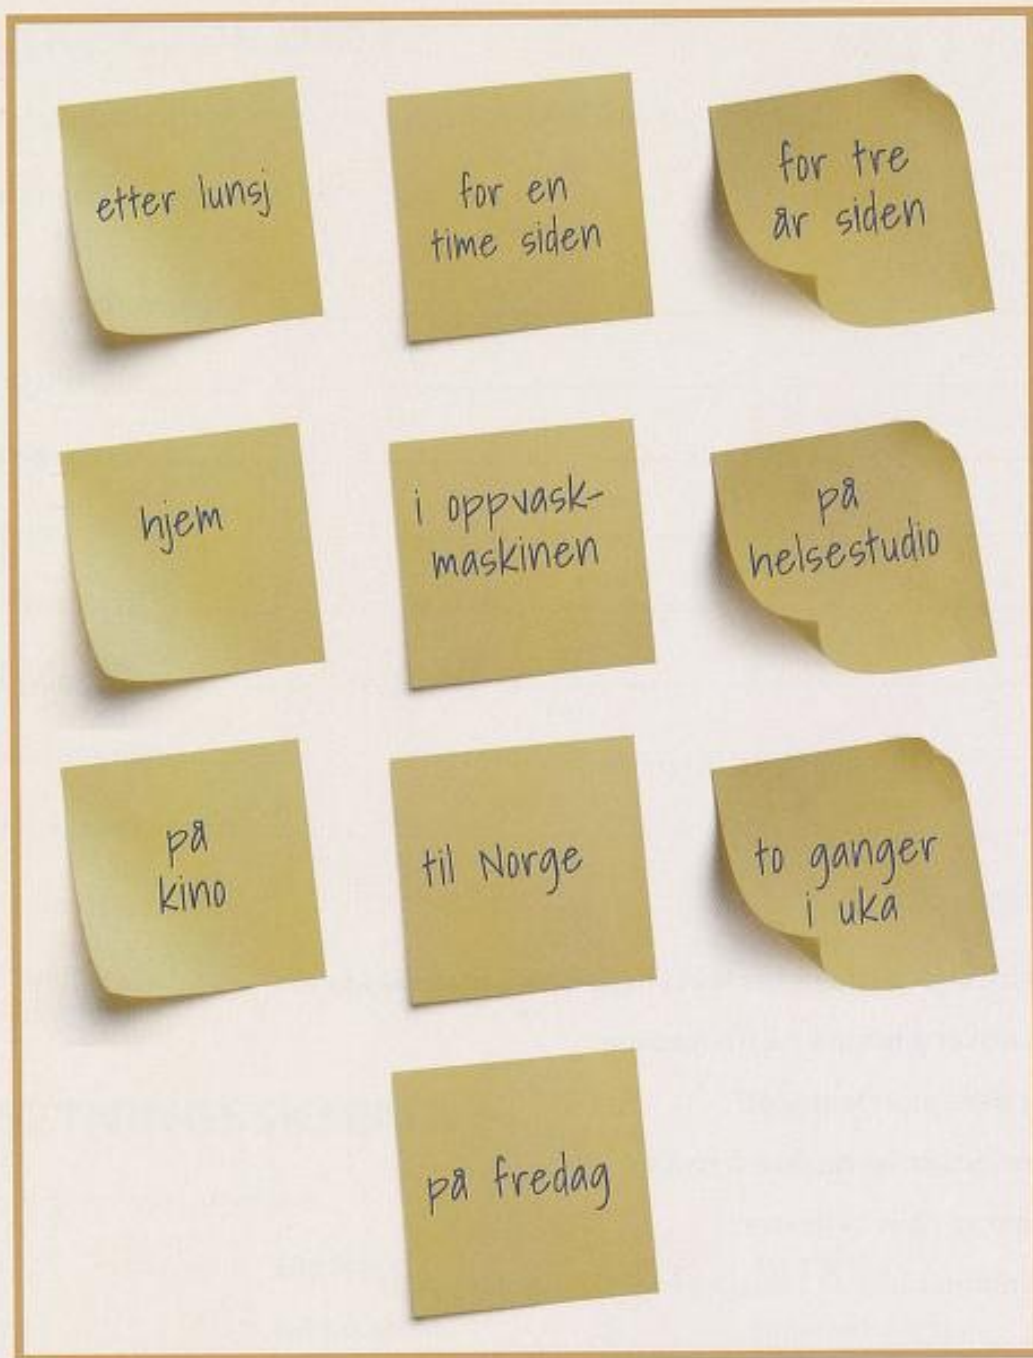 etter lunsj
for en
time siden
for tre
år siden
hjem
i oppvask-
maskinen
på
helsestudio
på
kino
til Norge
to ganger
i uka
på fredag